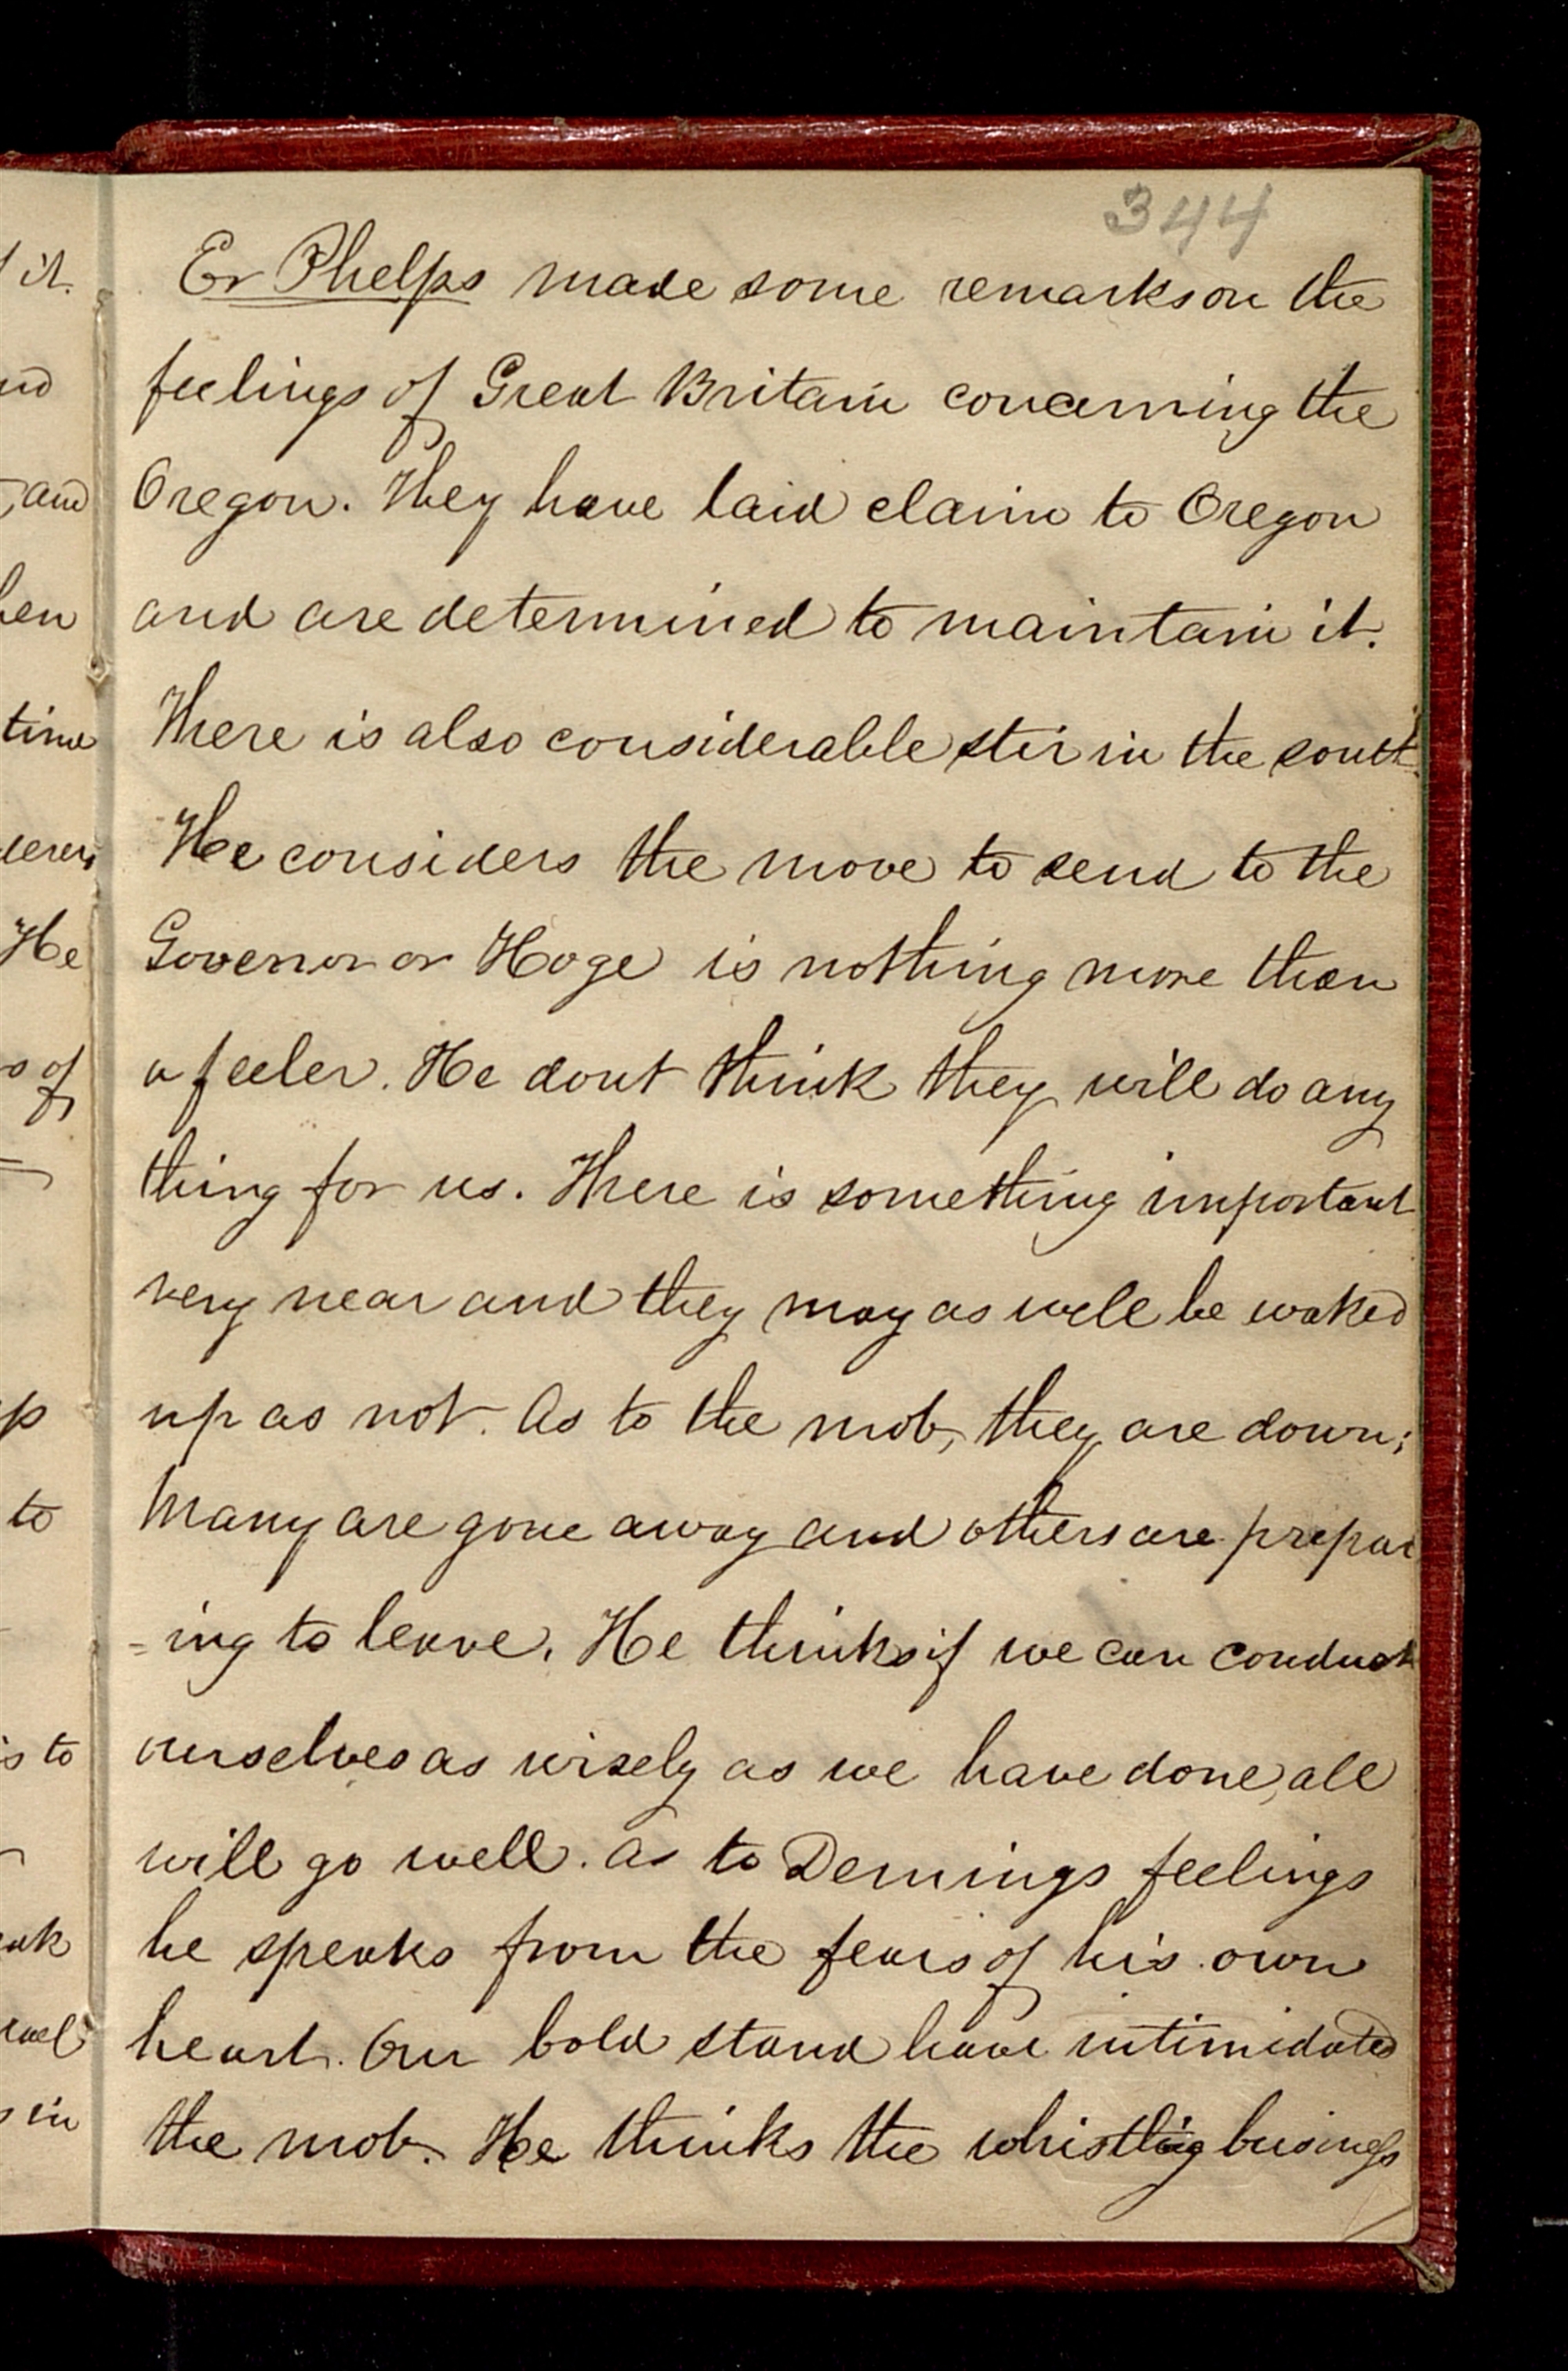 344
Er Phelps made some remarks on the
feelings of Great Britain concerning the
Oregon. They have laid claim to Oregon
and are determined to maintain it.
There is also considerable stir in the south.
He considers the move to send to the
Governor or Hoge is nothing more than
a feeler. He dont think they will do any
thing for us. There is something important
very near and they may as well be waked
up as not. As to the mob, they are down;
Many are gone away and others are prepar
=ing to leave. He thinks if we can conduct
ourselves as wisely as we have done, all
will go well. As to Demings feelings
he speaks from the fears of his own
heart. Our bold stand have intimidated
the mob. He thinks the whistling business
it.
and
time
He
of
to
to
in